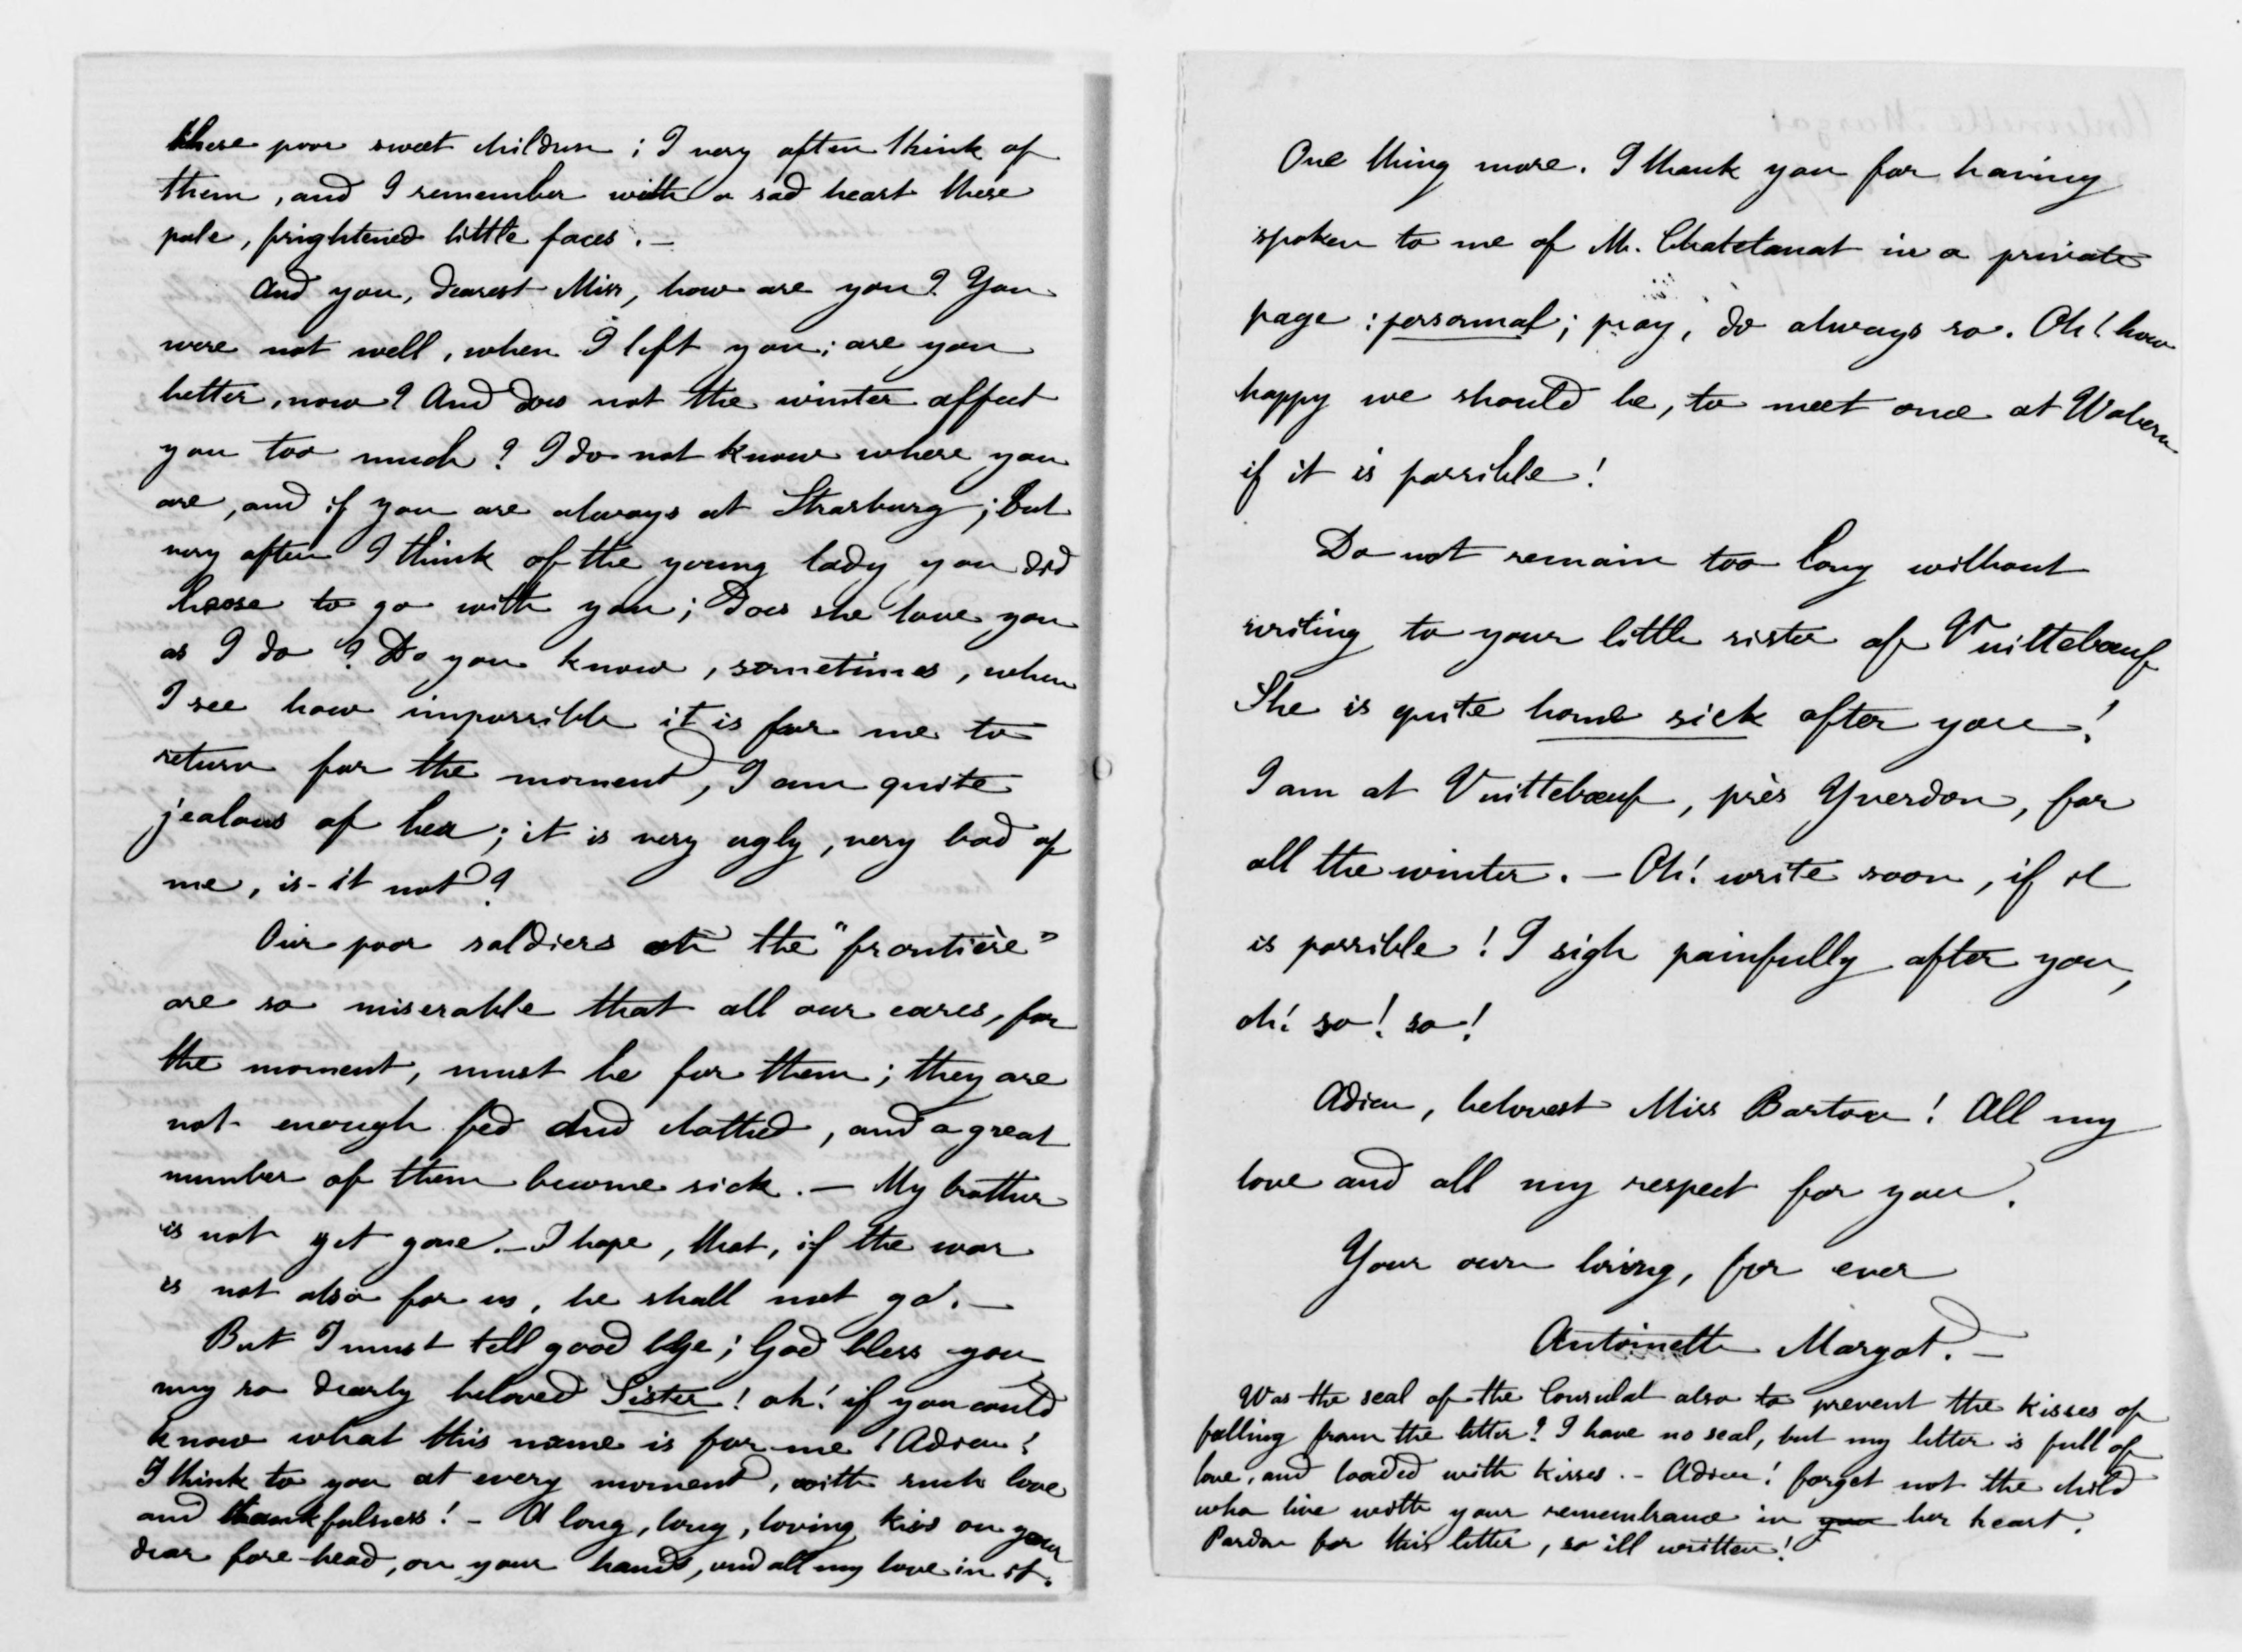 these poor sweet children ; I very often think of
them, and I remember with a sad heart these
pale, frightened little faces. —
And you, dearest Miss, how are you? You
were not well, when I left you; are you
better, now? And does not the winter affect
you too much? I do not know where you
are, and if you are always at Strasburg; but
very often I think of the young lady you did
hoose to go with you; Does she love you
as I do? Do you know, sometimes, when
I see how impossible it is for me to
return for the moment, I am quite
jealous of her; it is very ugly, very bad of
me, is-it not?
Our poor soldiers at the "frontière"
are so miserable that all our cares, for
the moment, must be for them; they are
not enough fed and clothed, and a great
number of them become sick. — My brother
is not yet gone. — I hope, that, if the war
is not also for us, he shall not go. —
But I must tell good bye; God bless you
my so dearly beloved Sister! oh! if you could
know what this name is for me! Adieu!
I think to you at every moment, with such love
and thankfulness! - A long, long, loving kiss on your
dear fore-head, on your hands, and all my love in it.
One thing more. I thank you for having
spoken to me of M. Chatelanat in a private
page : personnal; pray, do always so. Oh! how
happy we should be, to meet once at Wabern
if it is possible!
Do not remain too long without
writing to your little sister of Vuittebœuf
She is quite home sick after you!
I am at Vuittebœuf, près Yverdon, for
all the winter. — Oh! write soon, if it
is possible! I sigh painfully after you,
oh! so! so!
Adieu, belovest Miss Barton! All my
love and all my respect for you.
Your own loving, for ever
Antoinette Margot. —
Was the seal of the Consulat also to prevent the kisses of
falling from the letter? I have no seal, but my letter is full of
love, and loaded with kisses. - Adieu! forget not the child
who live with your remembrance in you her heart.
Pardon for this letter, so ill written!